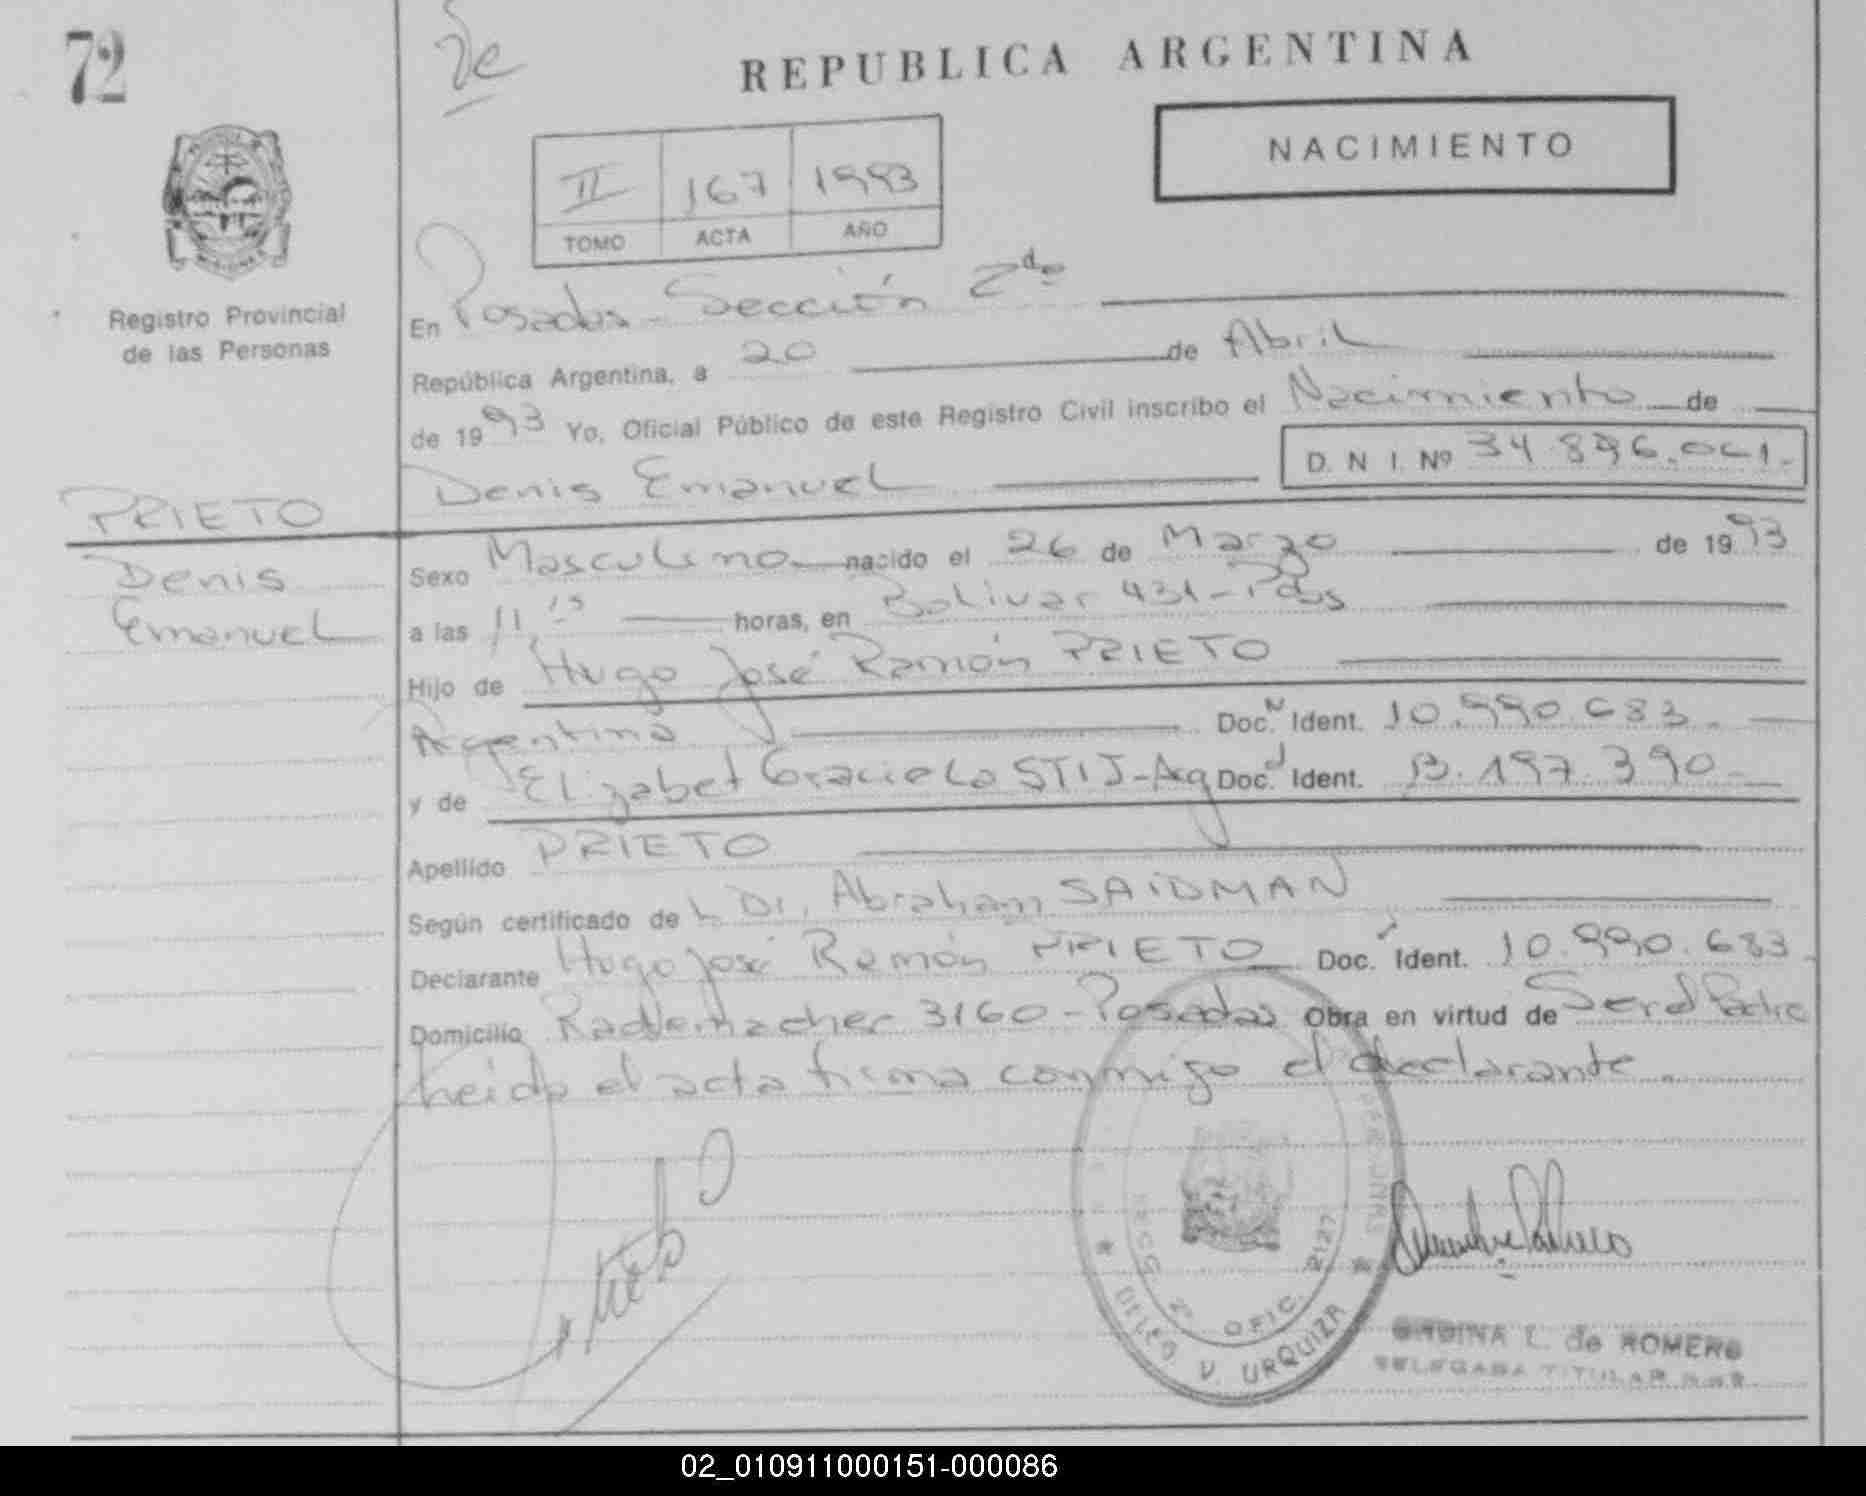 72
De
REPUBLICA ARGENTINA
NACIMIENTO
II 167 1993
TOMO ACTA AÑO
MISIONES
Registro Provincial
de las Personas
En Posadas - Sección 2da
República Argentina, a 20 de Abril
de 1993 Yo, Oficial Público de este Registro Civil inscribo el Nacimiento de
Denis Emanuel D. N I. Nº 34.896.001.-
PRIETO
Denis
Emanuel
Sexo Masculino nacido el 26 de Marzo de 1993
a las 11,15 horas, en Bolivar 431 - Pdas
Hijo de Hugo José Ramón PRIETO
Argentina Doc. N Ident. 10.990.683.
y de Elizabet Graciela STIJ - Arg Doc. Ident. 13.197.390.-
Apellido PRIETO
Según certificado de L Dr. Abraham SAIDMAN
Declarante Hugo José Ramón PRIETO Doc. Ident. 10.990.683.
Domicilio Rademacher 3160 - Posadas Obra en virtud de Ser el Padre
Leida el acta firma conmigo el declarante.
SECC. 2º OFIC. 2127
DELEG V. URQUIZA
L. de ROMERO
DELEGADA TITULAR
02_010911000151-000086